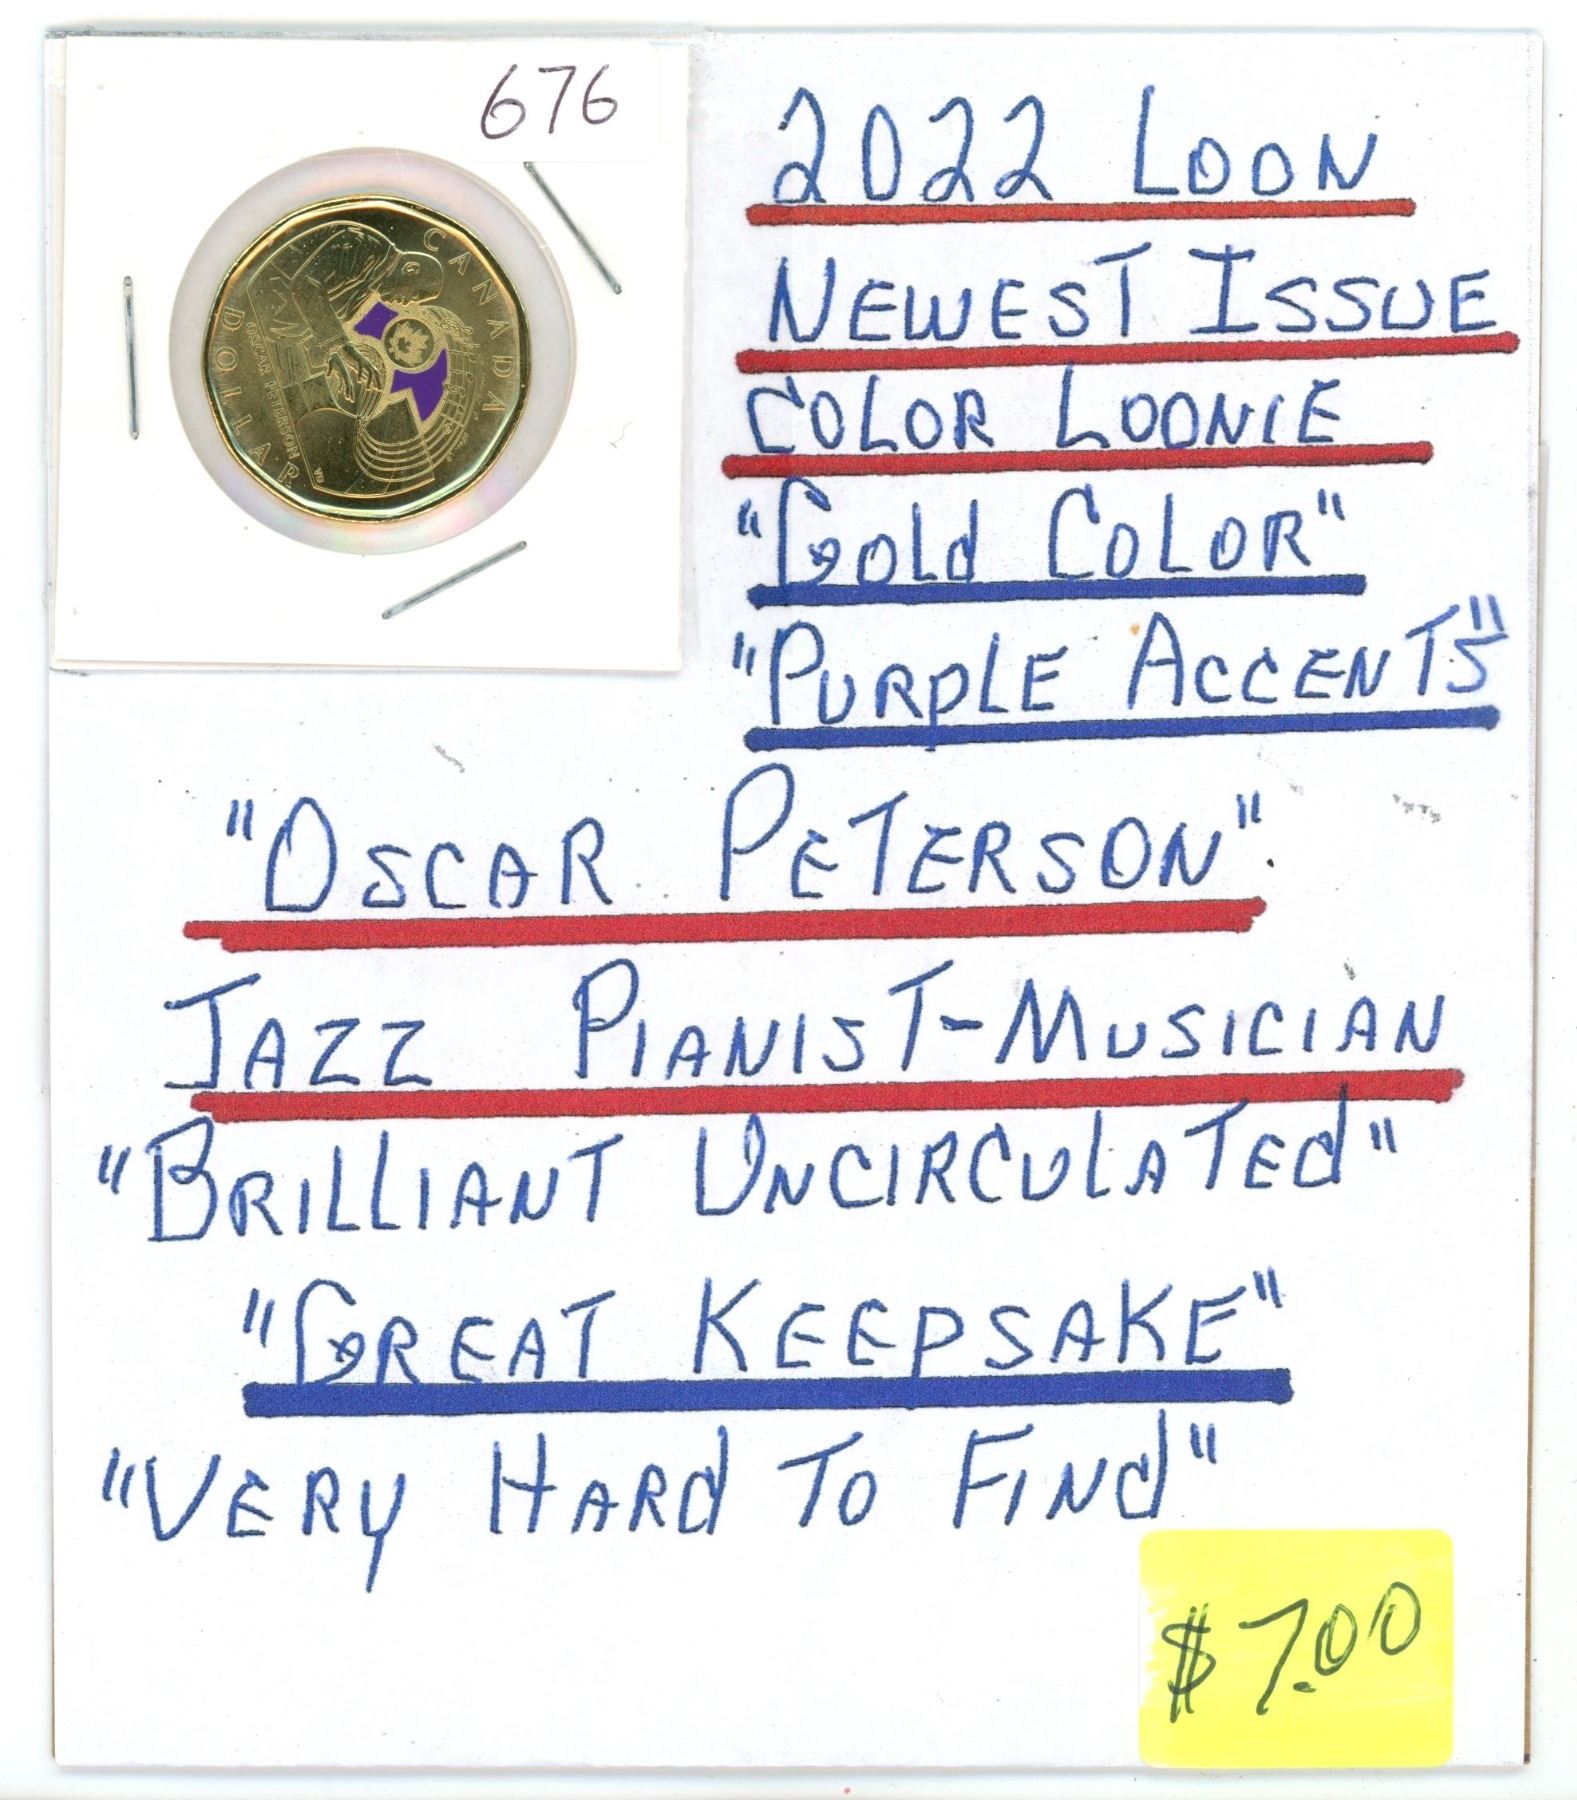 676
2022 LOON
NEWEST ISSUE
COLOR LOONIE
"GOLd COLOR"
"PURPLE ACCENTS"
CANADA
DOLLAR
OSCAR PETERSON
"OSCAR PETERSON"
JAZZ PIANIST-MUSICIAN
"BRILLIANT UNCIRCULATEd"
"GREAT KEEPSAKE"
"VERY HARd TO FINd"
$7.00